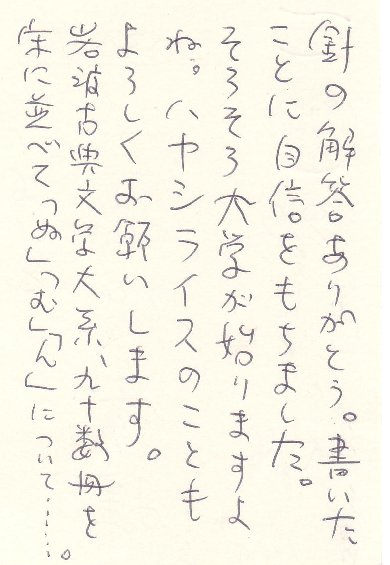 針の解答ありがとう。書いた
ことに自信をもちました。
そろそろ大学が始りますよ
ね。ハヤシライスのことも
よろしくお願いします。
岩波古典文学大系、九十数冊を
床に並べて「ぬ」「む」「ん」について……。